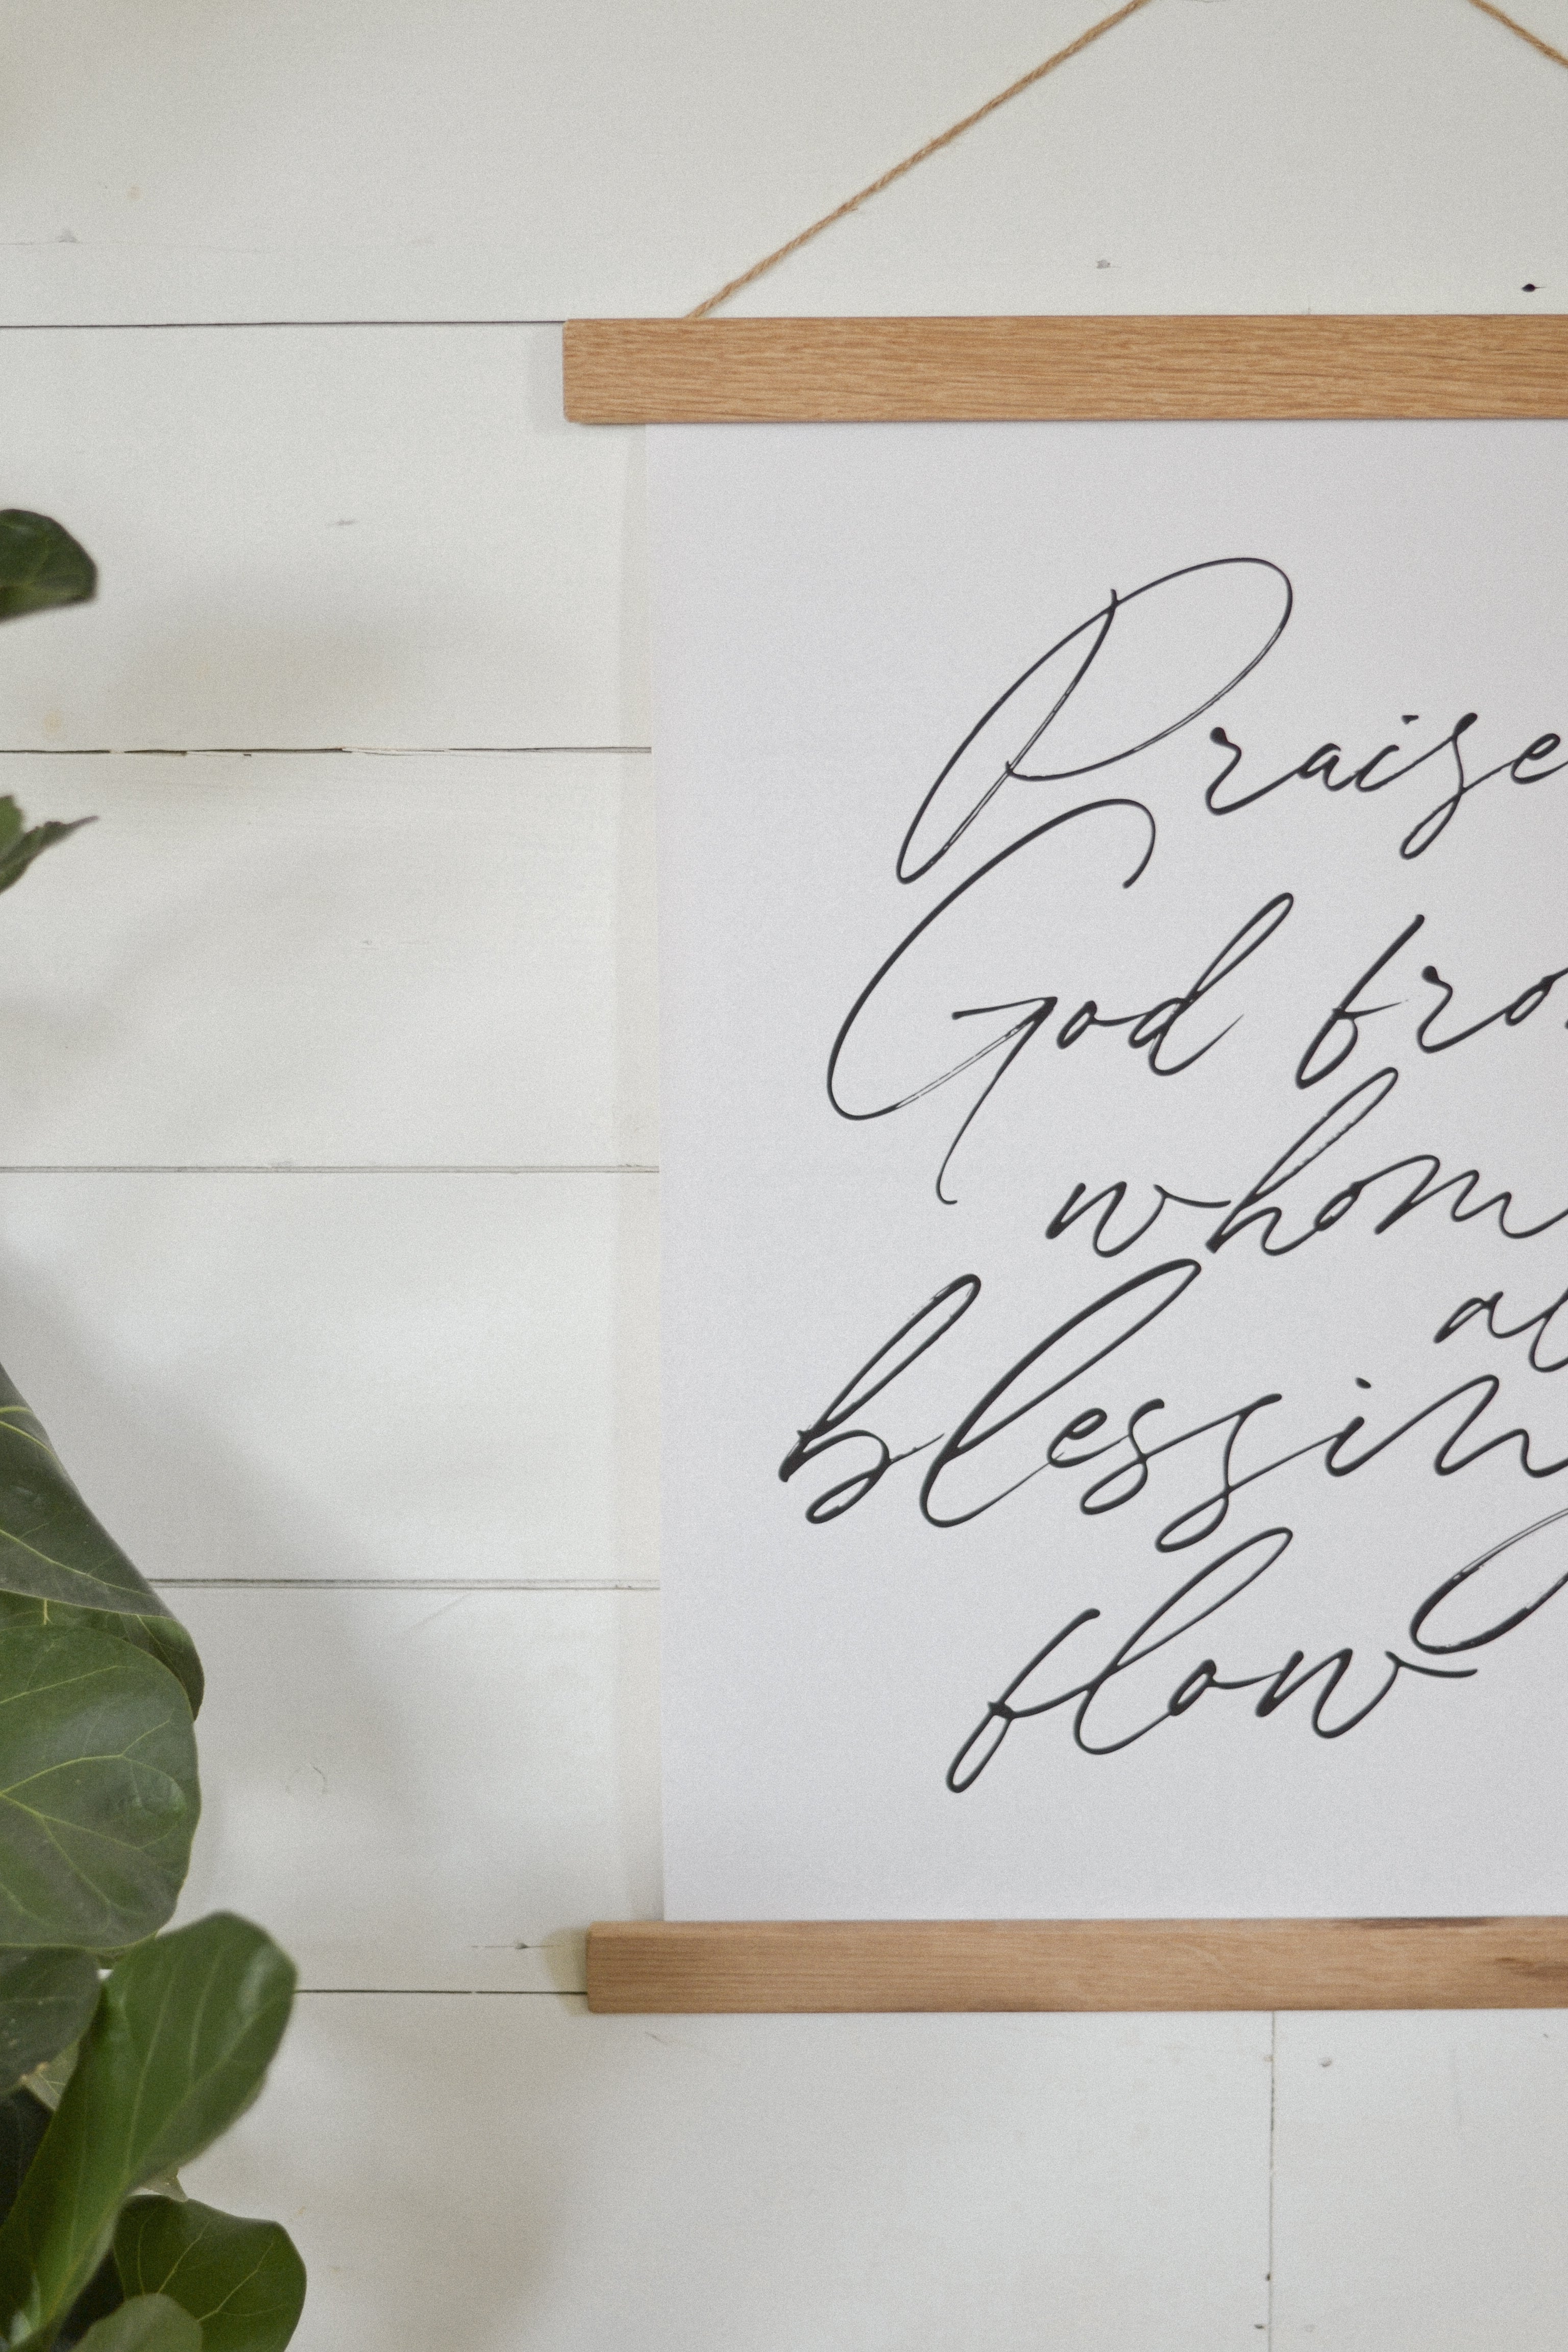 Praise
God fro
whom
al
blessing
flow